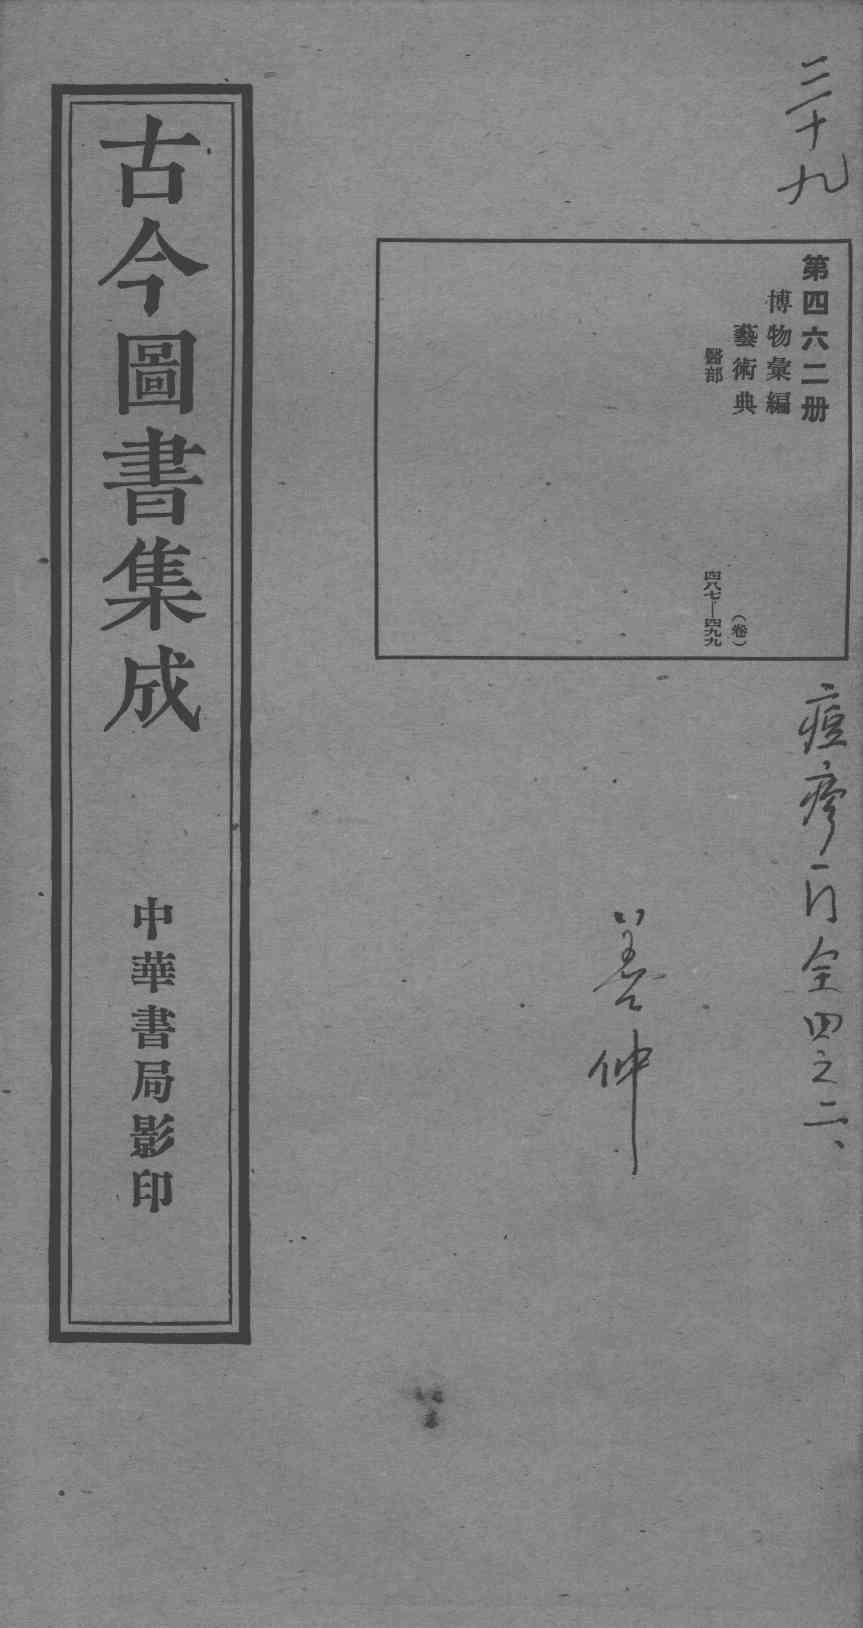 三十九
第四六二册
博物彙編
藝術典
(卷)
醫部
四八七—四九九
痘疹门全四之二、
善仲
古今圖書集成
中華書局影印